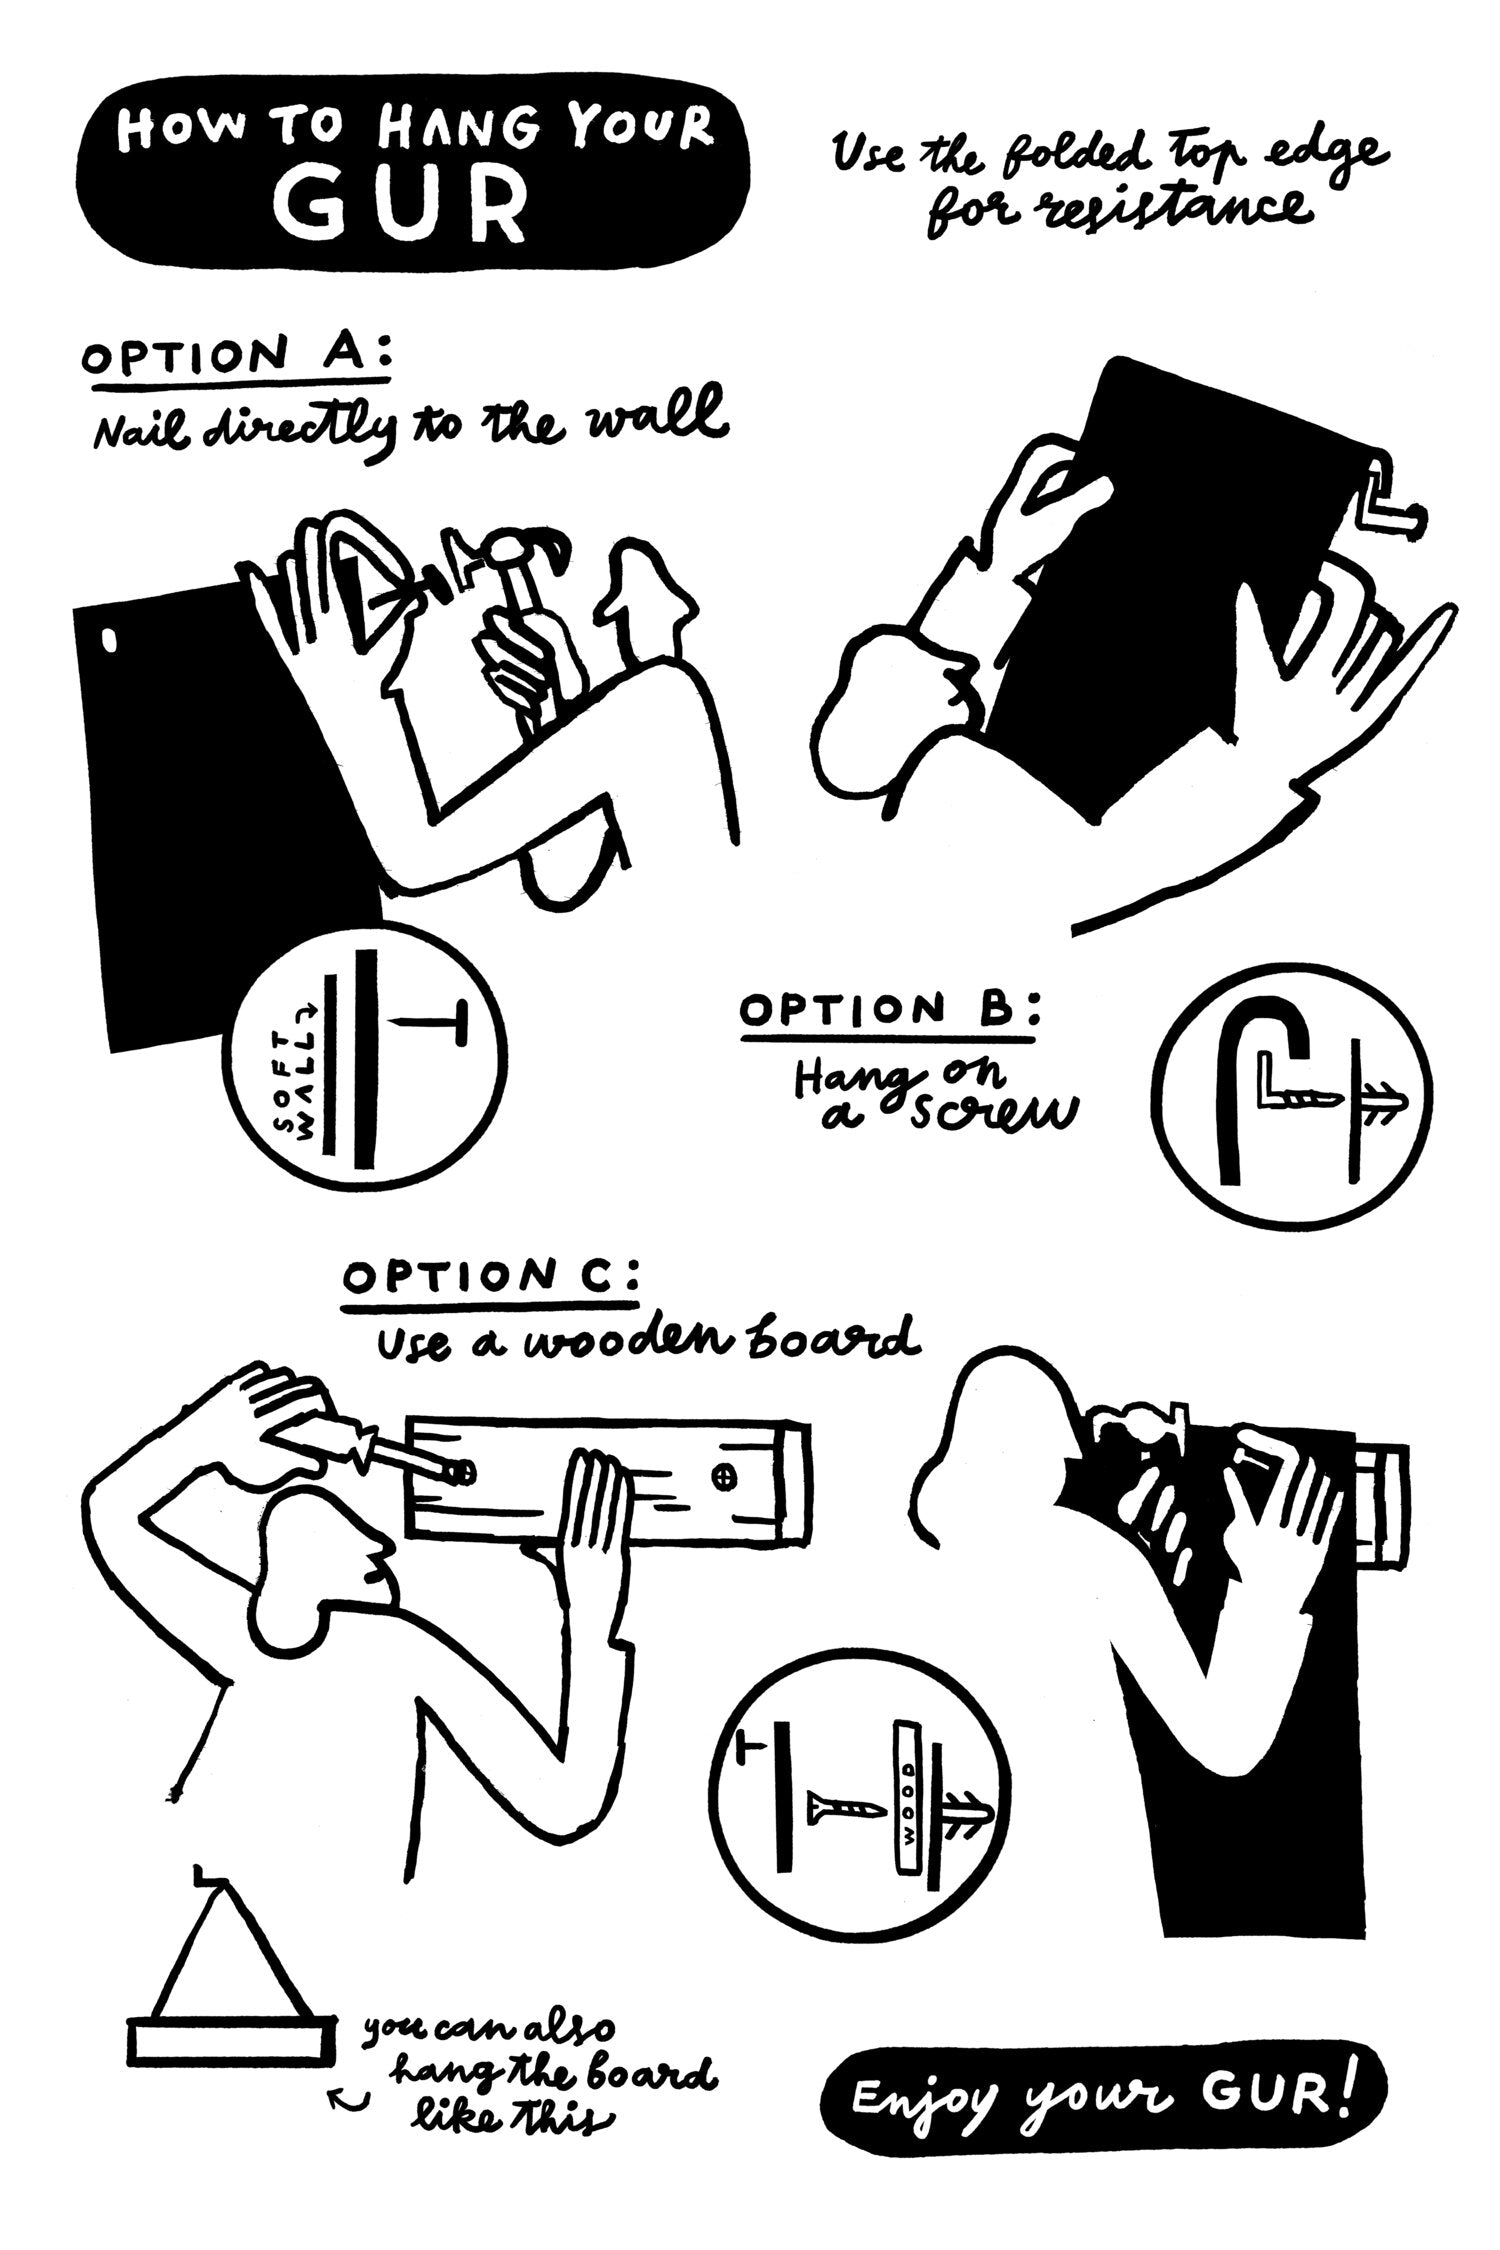 HOW TO HANG YOUR
GUR
Use the folded top edge
for resistance
OPTION A:
Nail directly to the wall
SOFT
WALL
OPTION B:
Hang on
a screw
OPTION C:
Use a wooden board
WOOD
you can also
hang the board
like this
Enjoy your GUR!